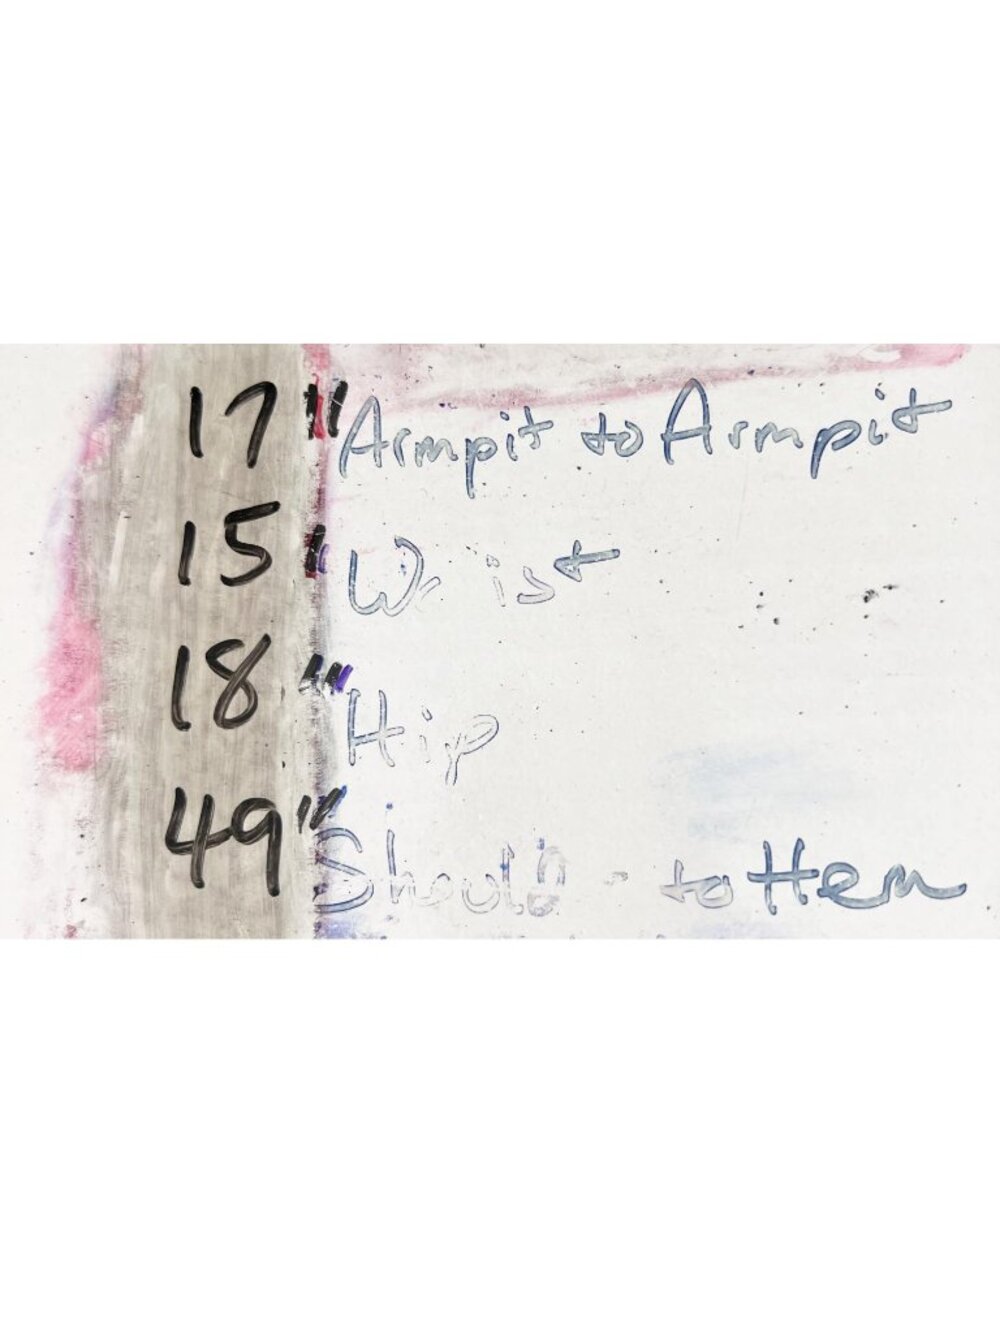 17" Armpit to Armpit
15" Waist
18" Hip
49" Should to Hem